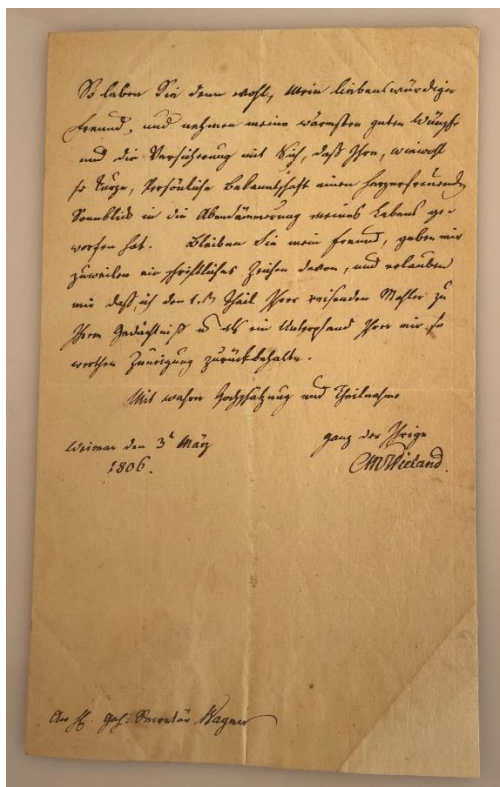 So leben Sie denn wohl, mein liebenswürdiger
Freund, und nehmen meine wärmsten guten Wünsche
und die Versicherung mit Sich, daß Ihre, wiewohl
so kurze, Persönliche Bekanntschaft einen herzerfreuenden
Sonnblick in die Abendämmerung meines Lebens ge-
worfen hat. Bleiben Sie mein Freund, geben mir
zuweilen ein schriftliches Zeichen davon, und erlauben
mir daß ich den Theil Ihrer reisenden Mahler zu
Ihrem Gedächtniß u als ein Unterpfand Ihrer mir so
werthen Zuneigung zurückbehalte.
Mit wahrer Hochschätzung und Theilnahme
Weimar den 3 März
1806.
ganz der Ihrige
CMWieland.
An H. Geh. Secretär Wagner